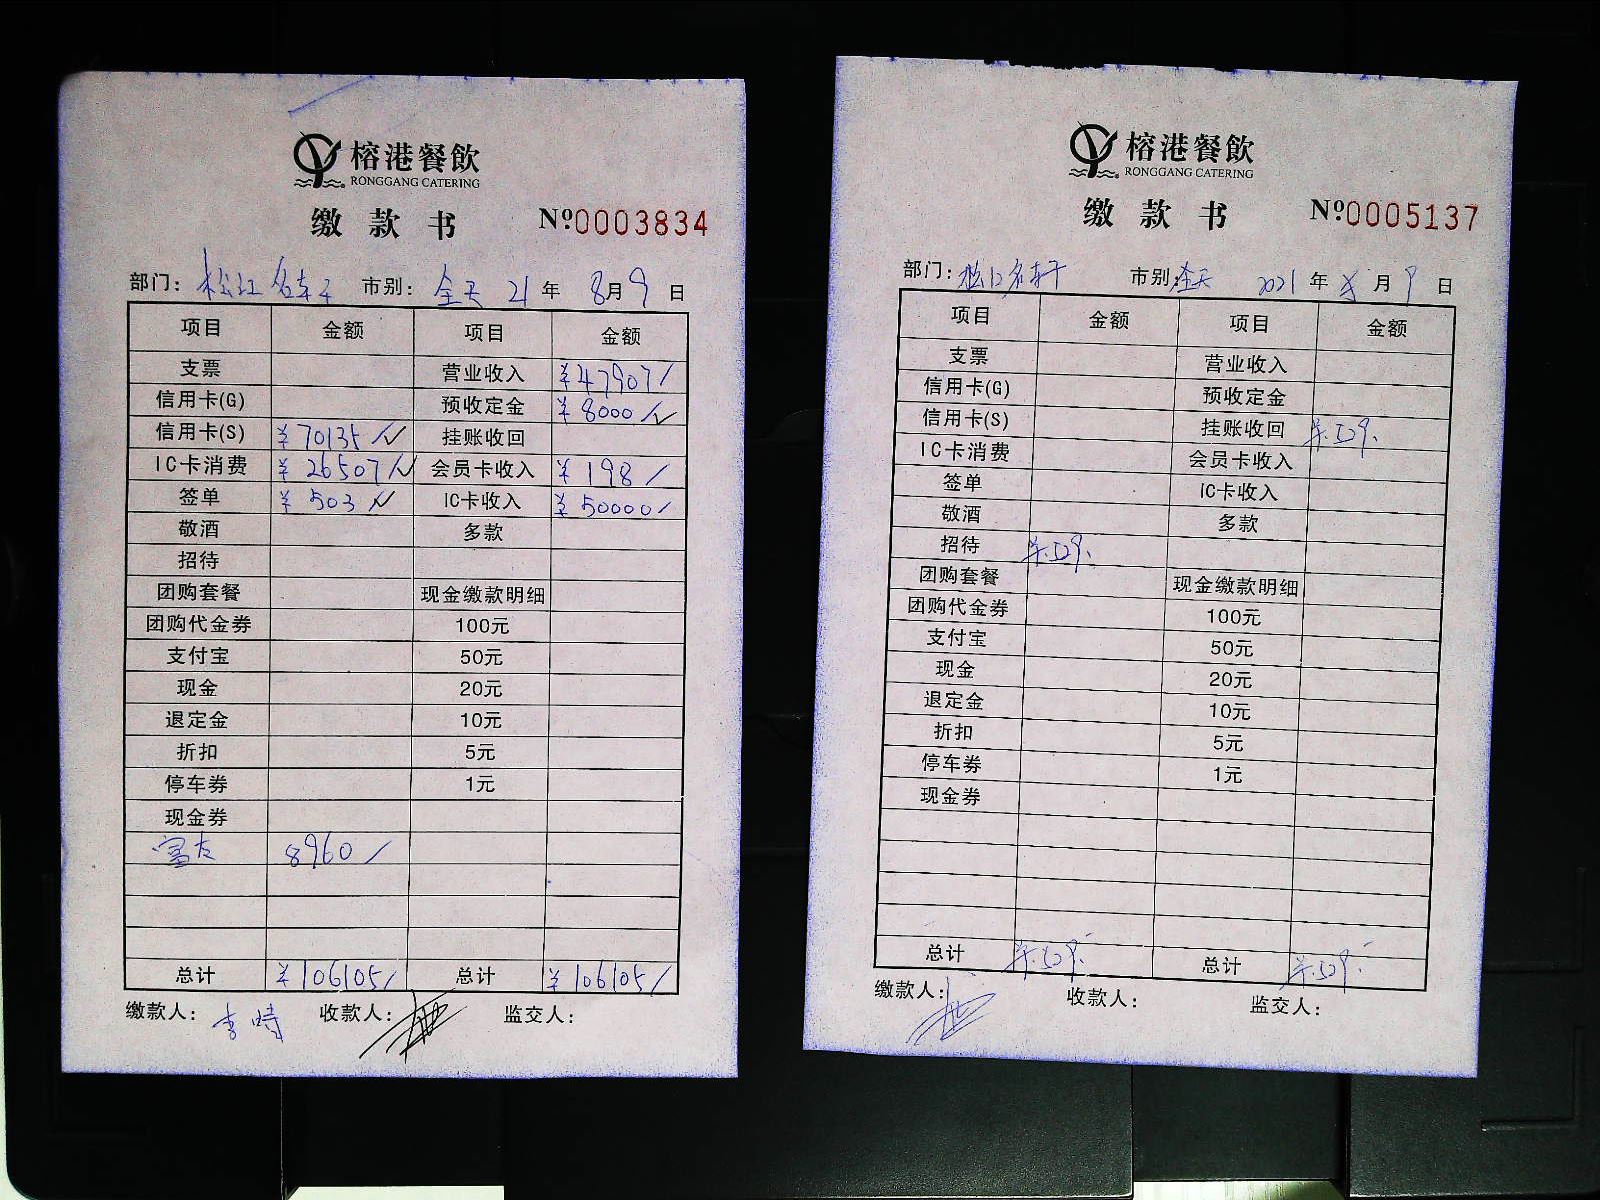 榕港餐飲
RONGGANG CATERING
缴款书 №0003834
部门: 松江名轩 市别: 全天 21 年 8月9 日
项目 金额 项目 金额
支票 营业收入 ¥47907
信用卡(G) 预收定金 ¥8000
信用卡(S) ¥70135 挂账收回
IC卡消费 ¥26507 会员卡收入 ¥198
签单 ¥503 IC卡收入 ¥50000
敬酒 多款
招待
团购套餐 现金缴款明细
团购代金券 100元
支付宝 50元
现金 20元
退定金 10元
折扣 5元
停车券 1元
现金券
富友 8960
总计 ¥106105 总计 ¥106105
缴款人: 李 收款人: 监交人:
榕港餐飲
RONGGANG CATERING
缴款书 №0005137
部门: 松江名轩 市别: 全天 2021 年 8 月 9 日
项目 金额 项目 金额
支票 营业收入
信用卡(G) 预收定金
信用卡(S) 挂账收回
IC卡消费 会员卡收入
签单 IC卡收入
敬酒 多款
招待
团购套餐 现金缴款明细
团购代金券 100元
支付宝 50元
现金 20元
退定金 10元
折扣 5元
停车券 1元
现金券
总计 总计
缴款人: 收款人: 监交人: